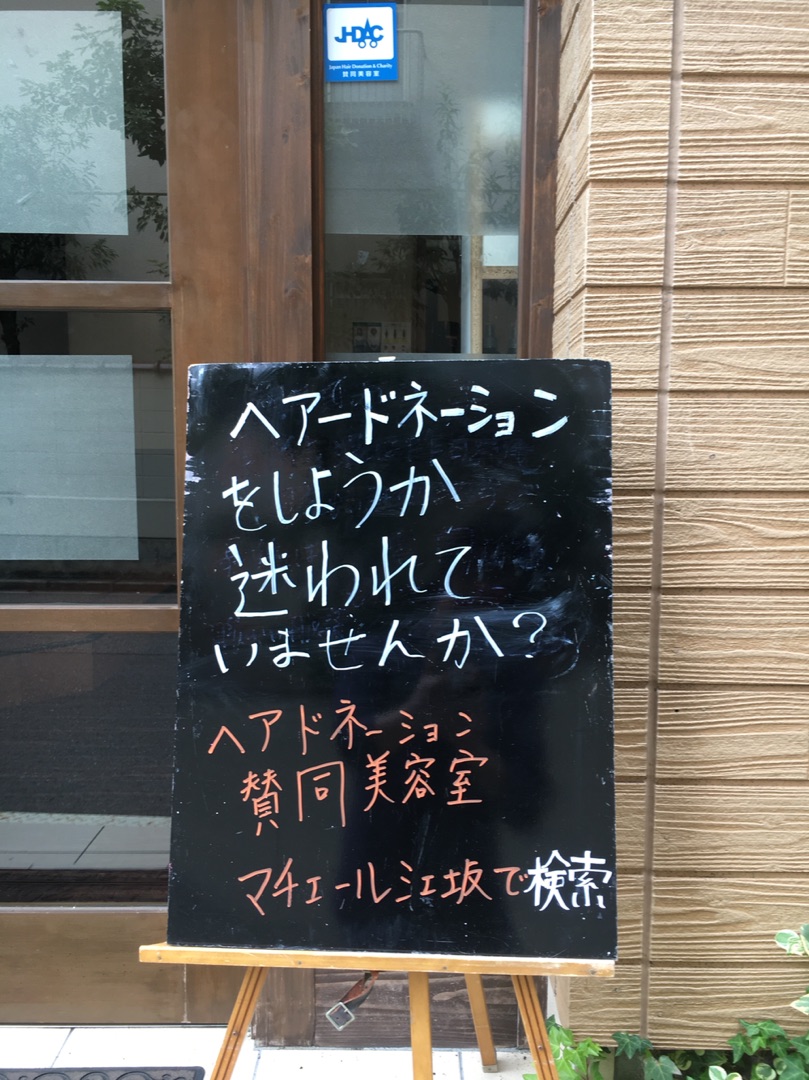 JHDAC
Japan Hair Donation & Charity
賛同美容室
ヘアードネーション
をしようか
迷われて
いませんか?
ヘアドネーション
賛同美容室
マチェール江坂で検索